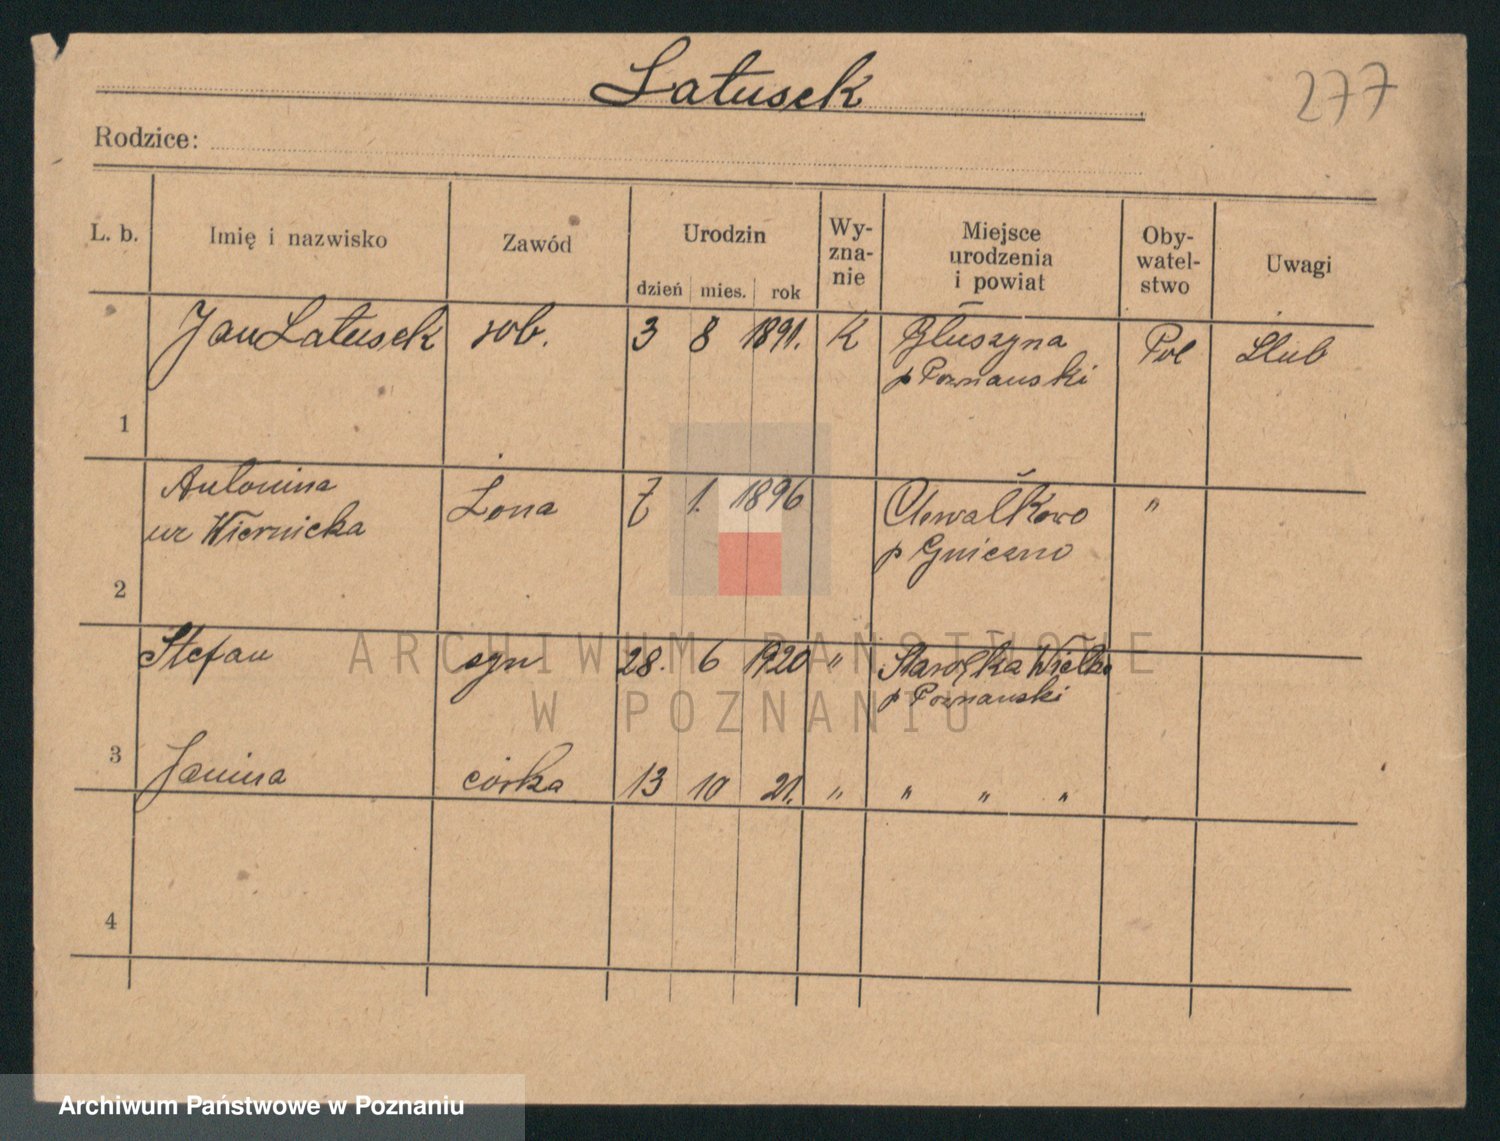 Latusek
277
Rodzice:
L. b. Imię i nazwisko Zawód Urodzin dzień mies. rok Wy-zna-nie Miejsce urodzenia i powiat Oby-watel-stwo Uwagi
1 Jan Latusek rob. 3 8 1891. K Głuszyna Pol Ślub
p Poznański
2 Antonina Żona 7 1. 1896 "
ur Wiernicka p Gniezno
3 Stefan syn 28. 6 1920 " Starołęka Wielka
p Poznański
Janina córka 13 10 21. " " " "
4
ARCHIWUM PAŃSTWOWE
W POZNANIU
Archiwum Państwowe w Poznaniu